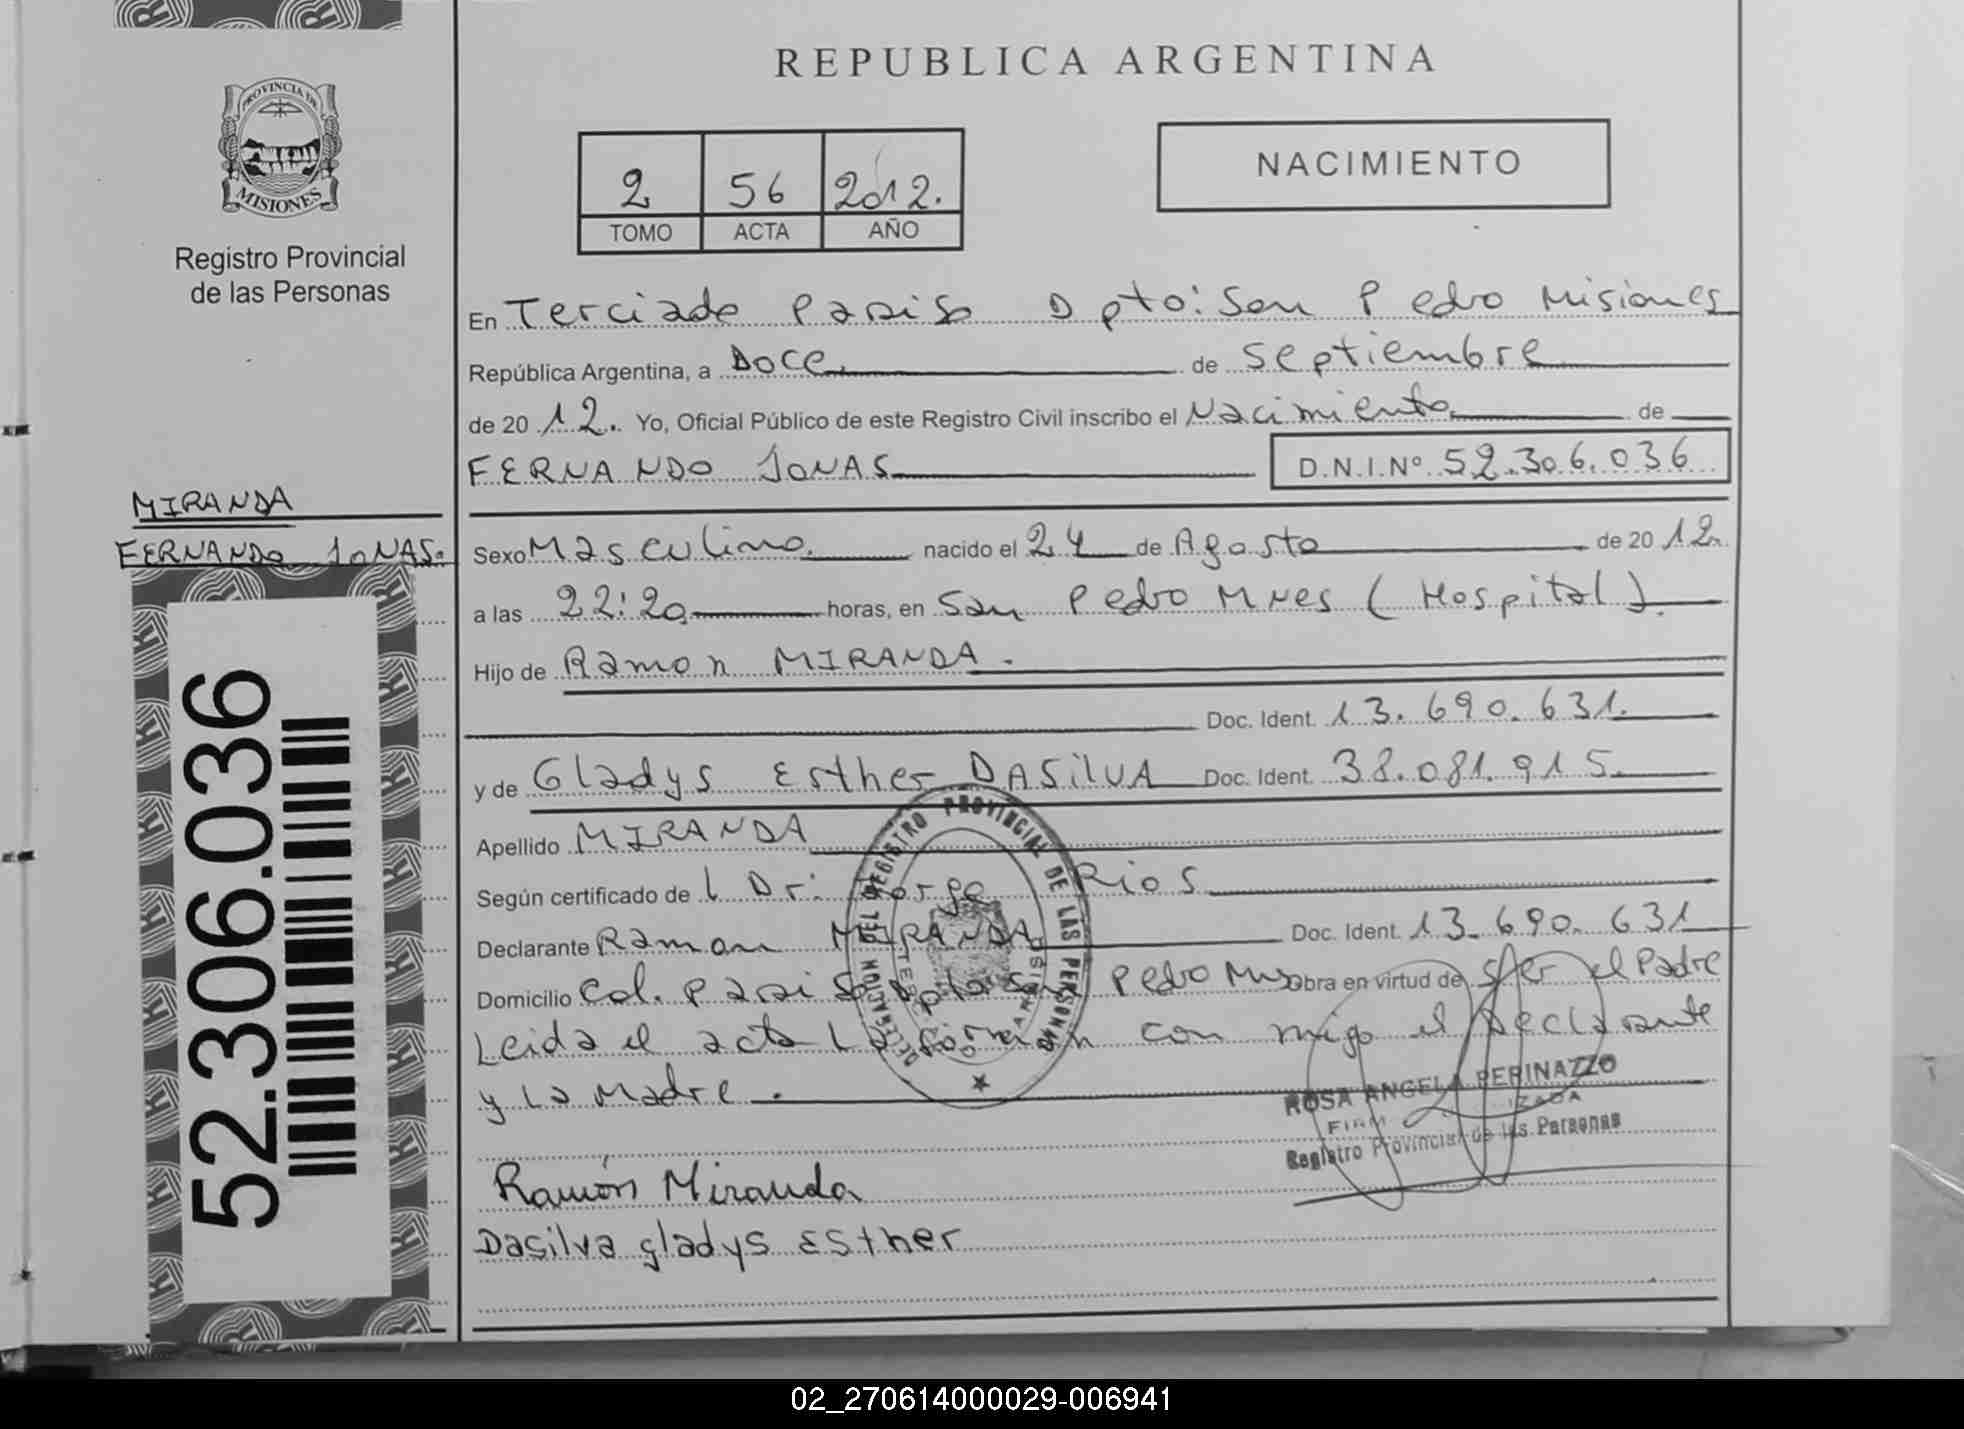 REPUBLICA ARGENTINA
PROVINCIA DE
MISIONES
Registro Provincial
de las Personas
2 56 2012.
TOMO ACTA AÑO
NACIMIENTO
En Terciado Paraiso Dpto: San Pedro Misiones
República Argentina, a Doce de Septiembre
de 20 12. Yo, Oficial Público de este Registro Civil inscribo el Nacimiento de
FERNANDO JONAS D.N.I.Nº 52.306.036
MIRANDA
FERNANDO JONAS.
52.306.036
Sexo Masculino nacido el 24 de Agosto de 20 12.
a las 22:20 horas, en San Pedro Mnes (Hospital).
Hijo de Ramon MIRANDA.
Doc. Ident. 13.690.631.
y de Gladys Esther DASILVA Doc. Ident. 38.081.915.
Apellido MIRANDA
Según certificado de l Dr. Jorge Rios
Declarante Ramon MIRANDA Doc. Ident. 13.690.631
Domicilio Col. Paraiso Dpto San Pedro Obra en virtud de Ser el Padre
Leida el acta La firman con migo el Declarante
y La Madre.
DELEGACION DEL REGISTRO PROVINCIAL DE LAS PERSONAS
ROSA ANGELA PERINAZZO
Registro Provincial de las Personas
Ramón Miranda
Dasilva gladys Esther
02_270614000029-006941